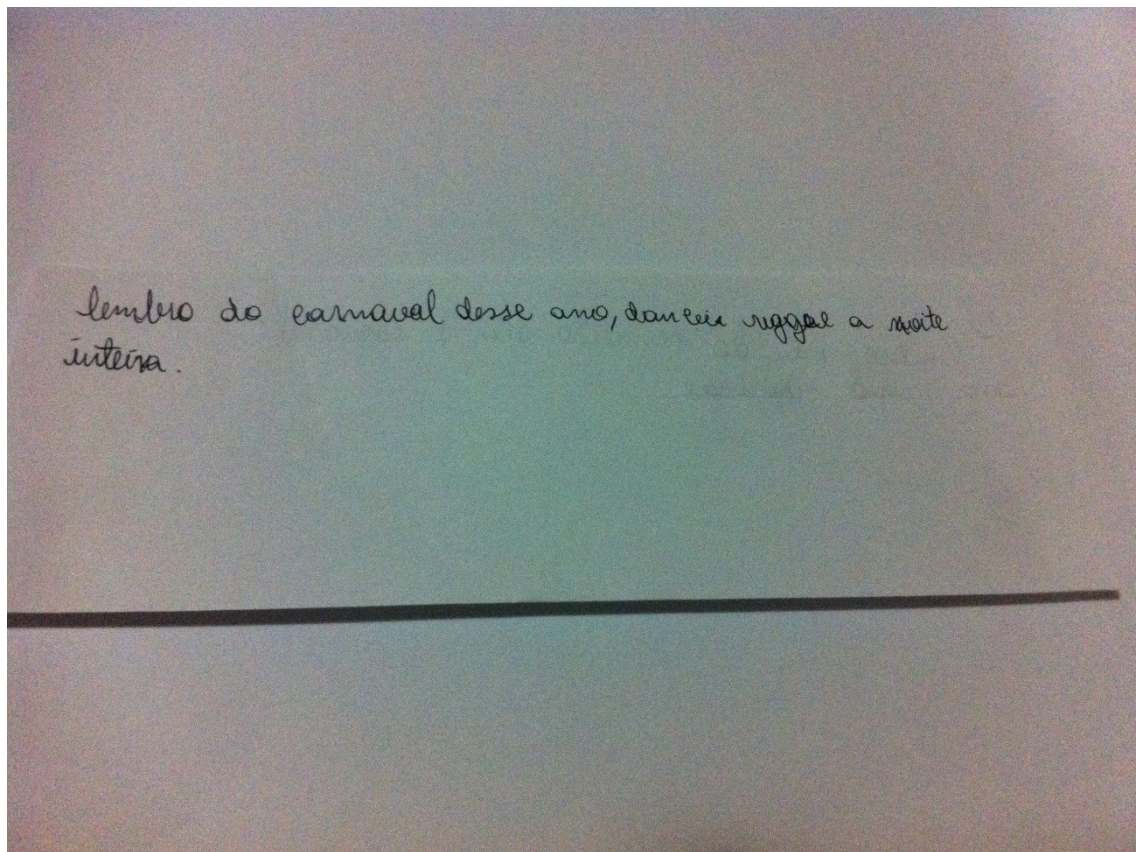 lembro do carnaval desse ano, dancei reggae a noite
inteira.